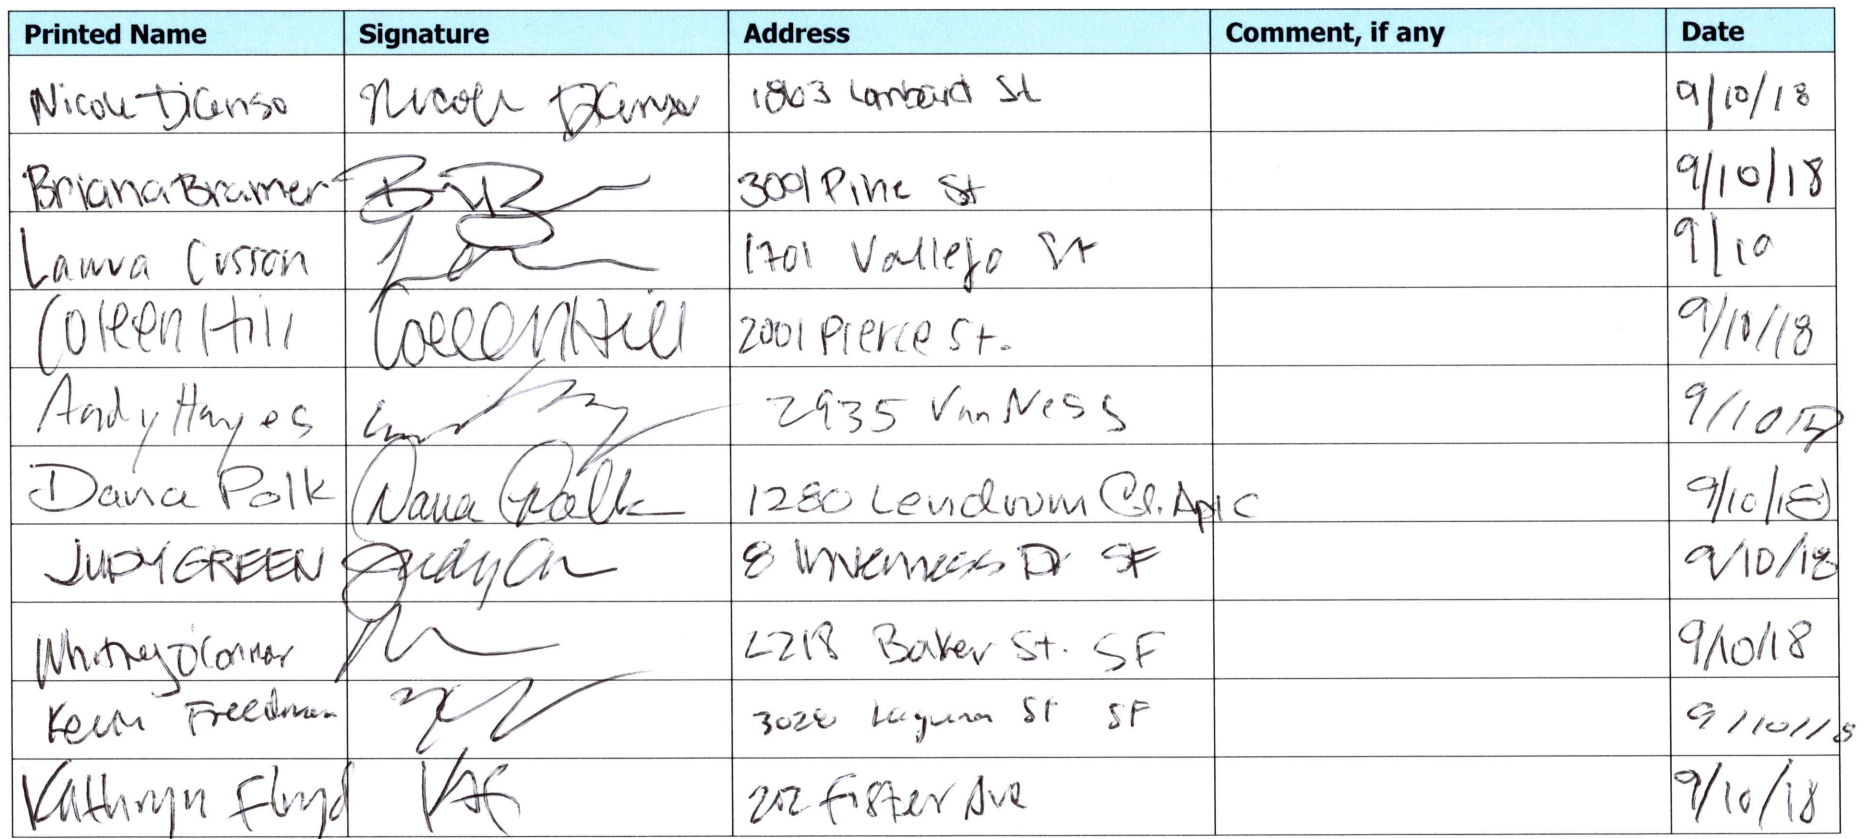 Printed Name Signature Address Comment, if any Date
Nicole DiCenso Nicole DiCenso 1863 Lombard St 9/10/18
Briana Bramer 3001 Pine St 9/10/18
Laura Cusson 1701 Vallejo St 9/10
Coleen Hill Coleen Hill 2001 Pierce St. 9/10/18
Andy Hayes 2935 Van Ness 9/10
Dana Polk Dana Polk 1280 Lendrum Ct. Apt C 9/10/18
JUDY GREEN Judy 8 Inverness Dr SF 9/10/18
Whitney O'Connor 2218 Baker St. SF 9/10/18
Kevin Freedman 3028 Laguna St SF 9/10/18
Kathryn Floyd KAF 202 Ave 9/10/18